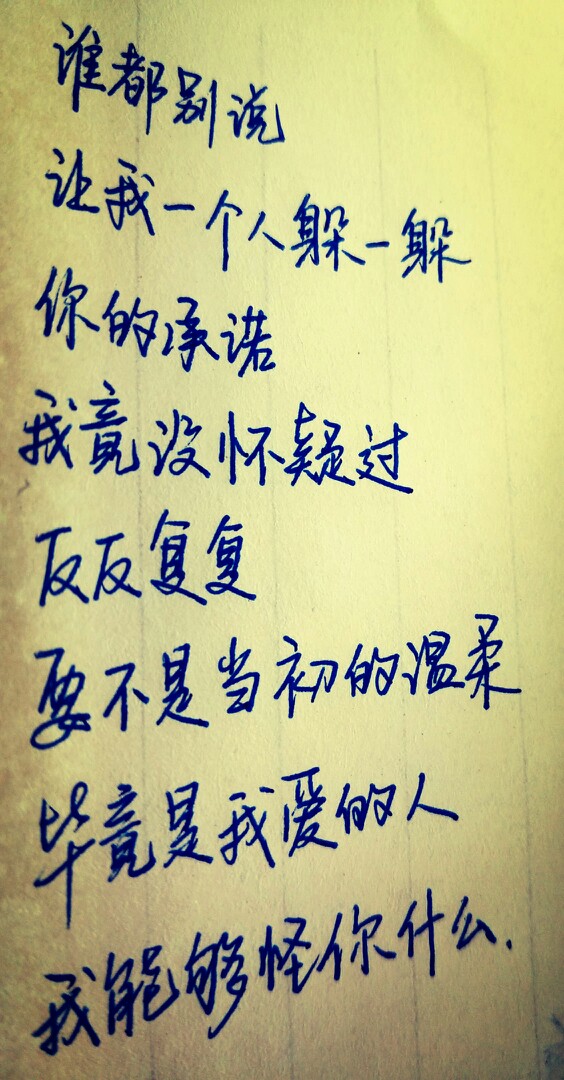 谁都别说
让我一个人躲一躲
你的承诺
我竟没怀疑过
反反复复
要不是当初的温柔
毕竟是我爱的人
我能够怪你什么.